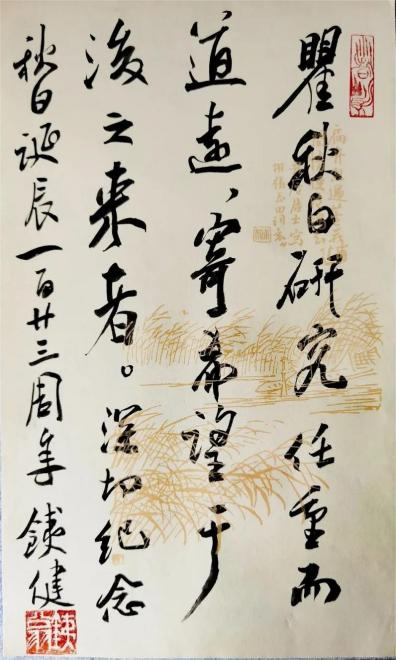 瞿秋白研究任重而
道远、寄希望于
后之来者。深切纪念
秋白诞辰一百廿三周年 铁健